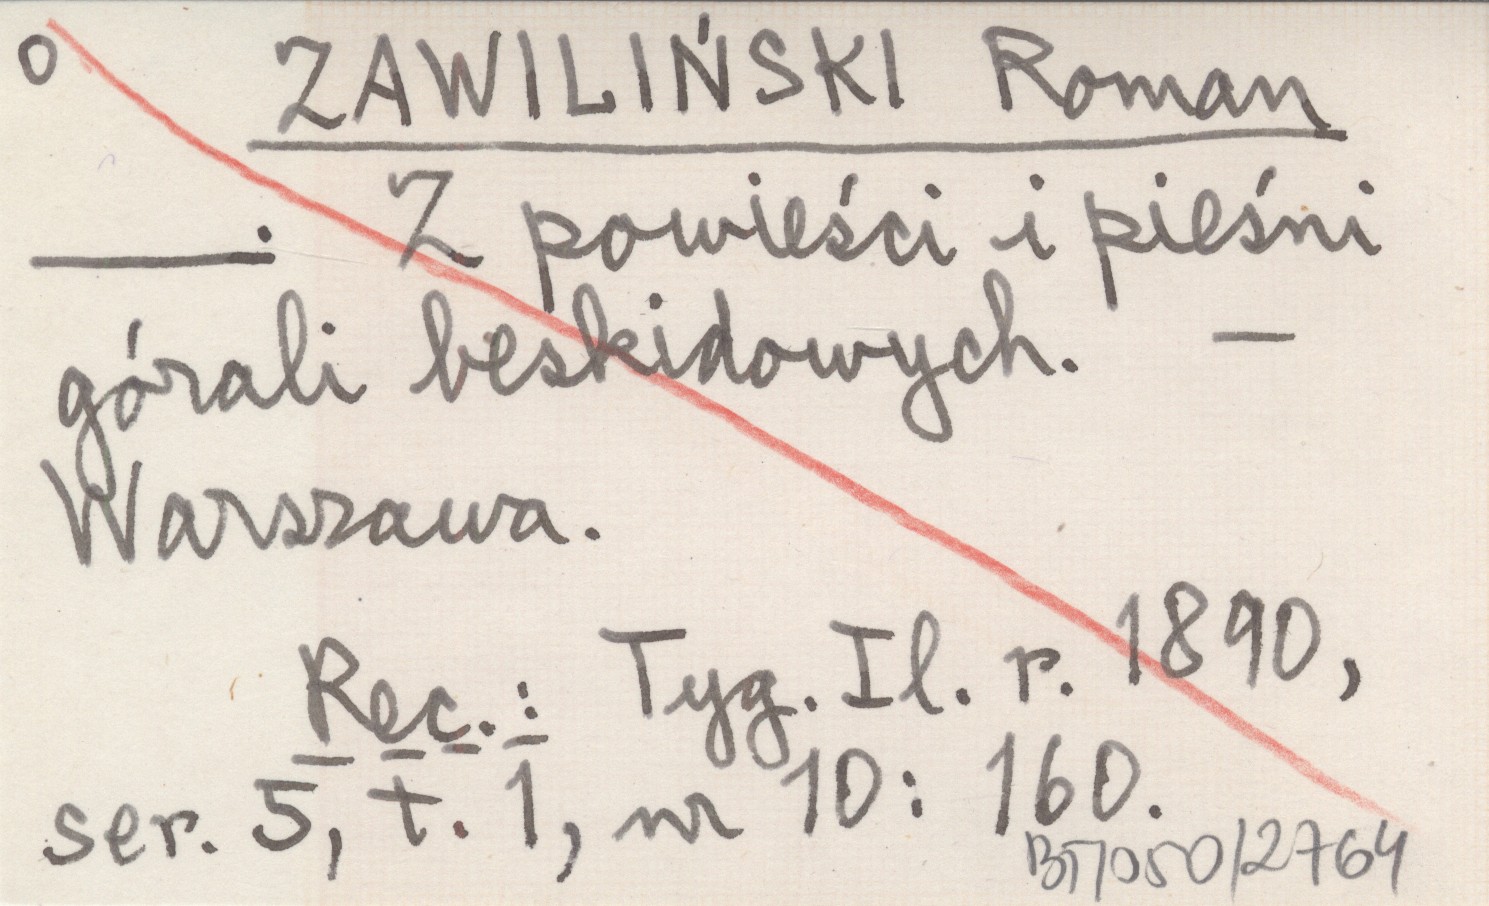 o ZAWILIŃSKI Roman
_____: Z powieści i pieśni
górali beskidowych. —
Warszawa.
Rec.: Tyg. Il. r. 1890,
ser. 5, t. 1, nr 10: 160.
BT/050/2764